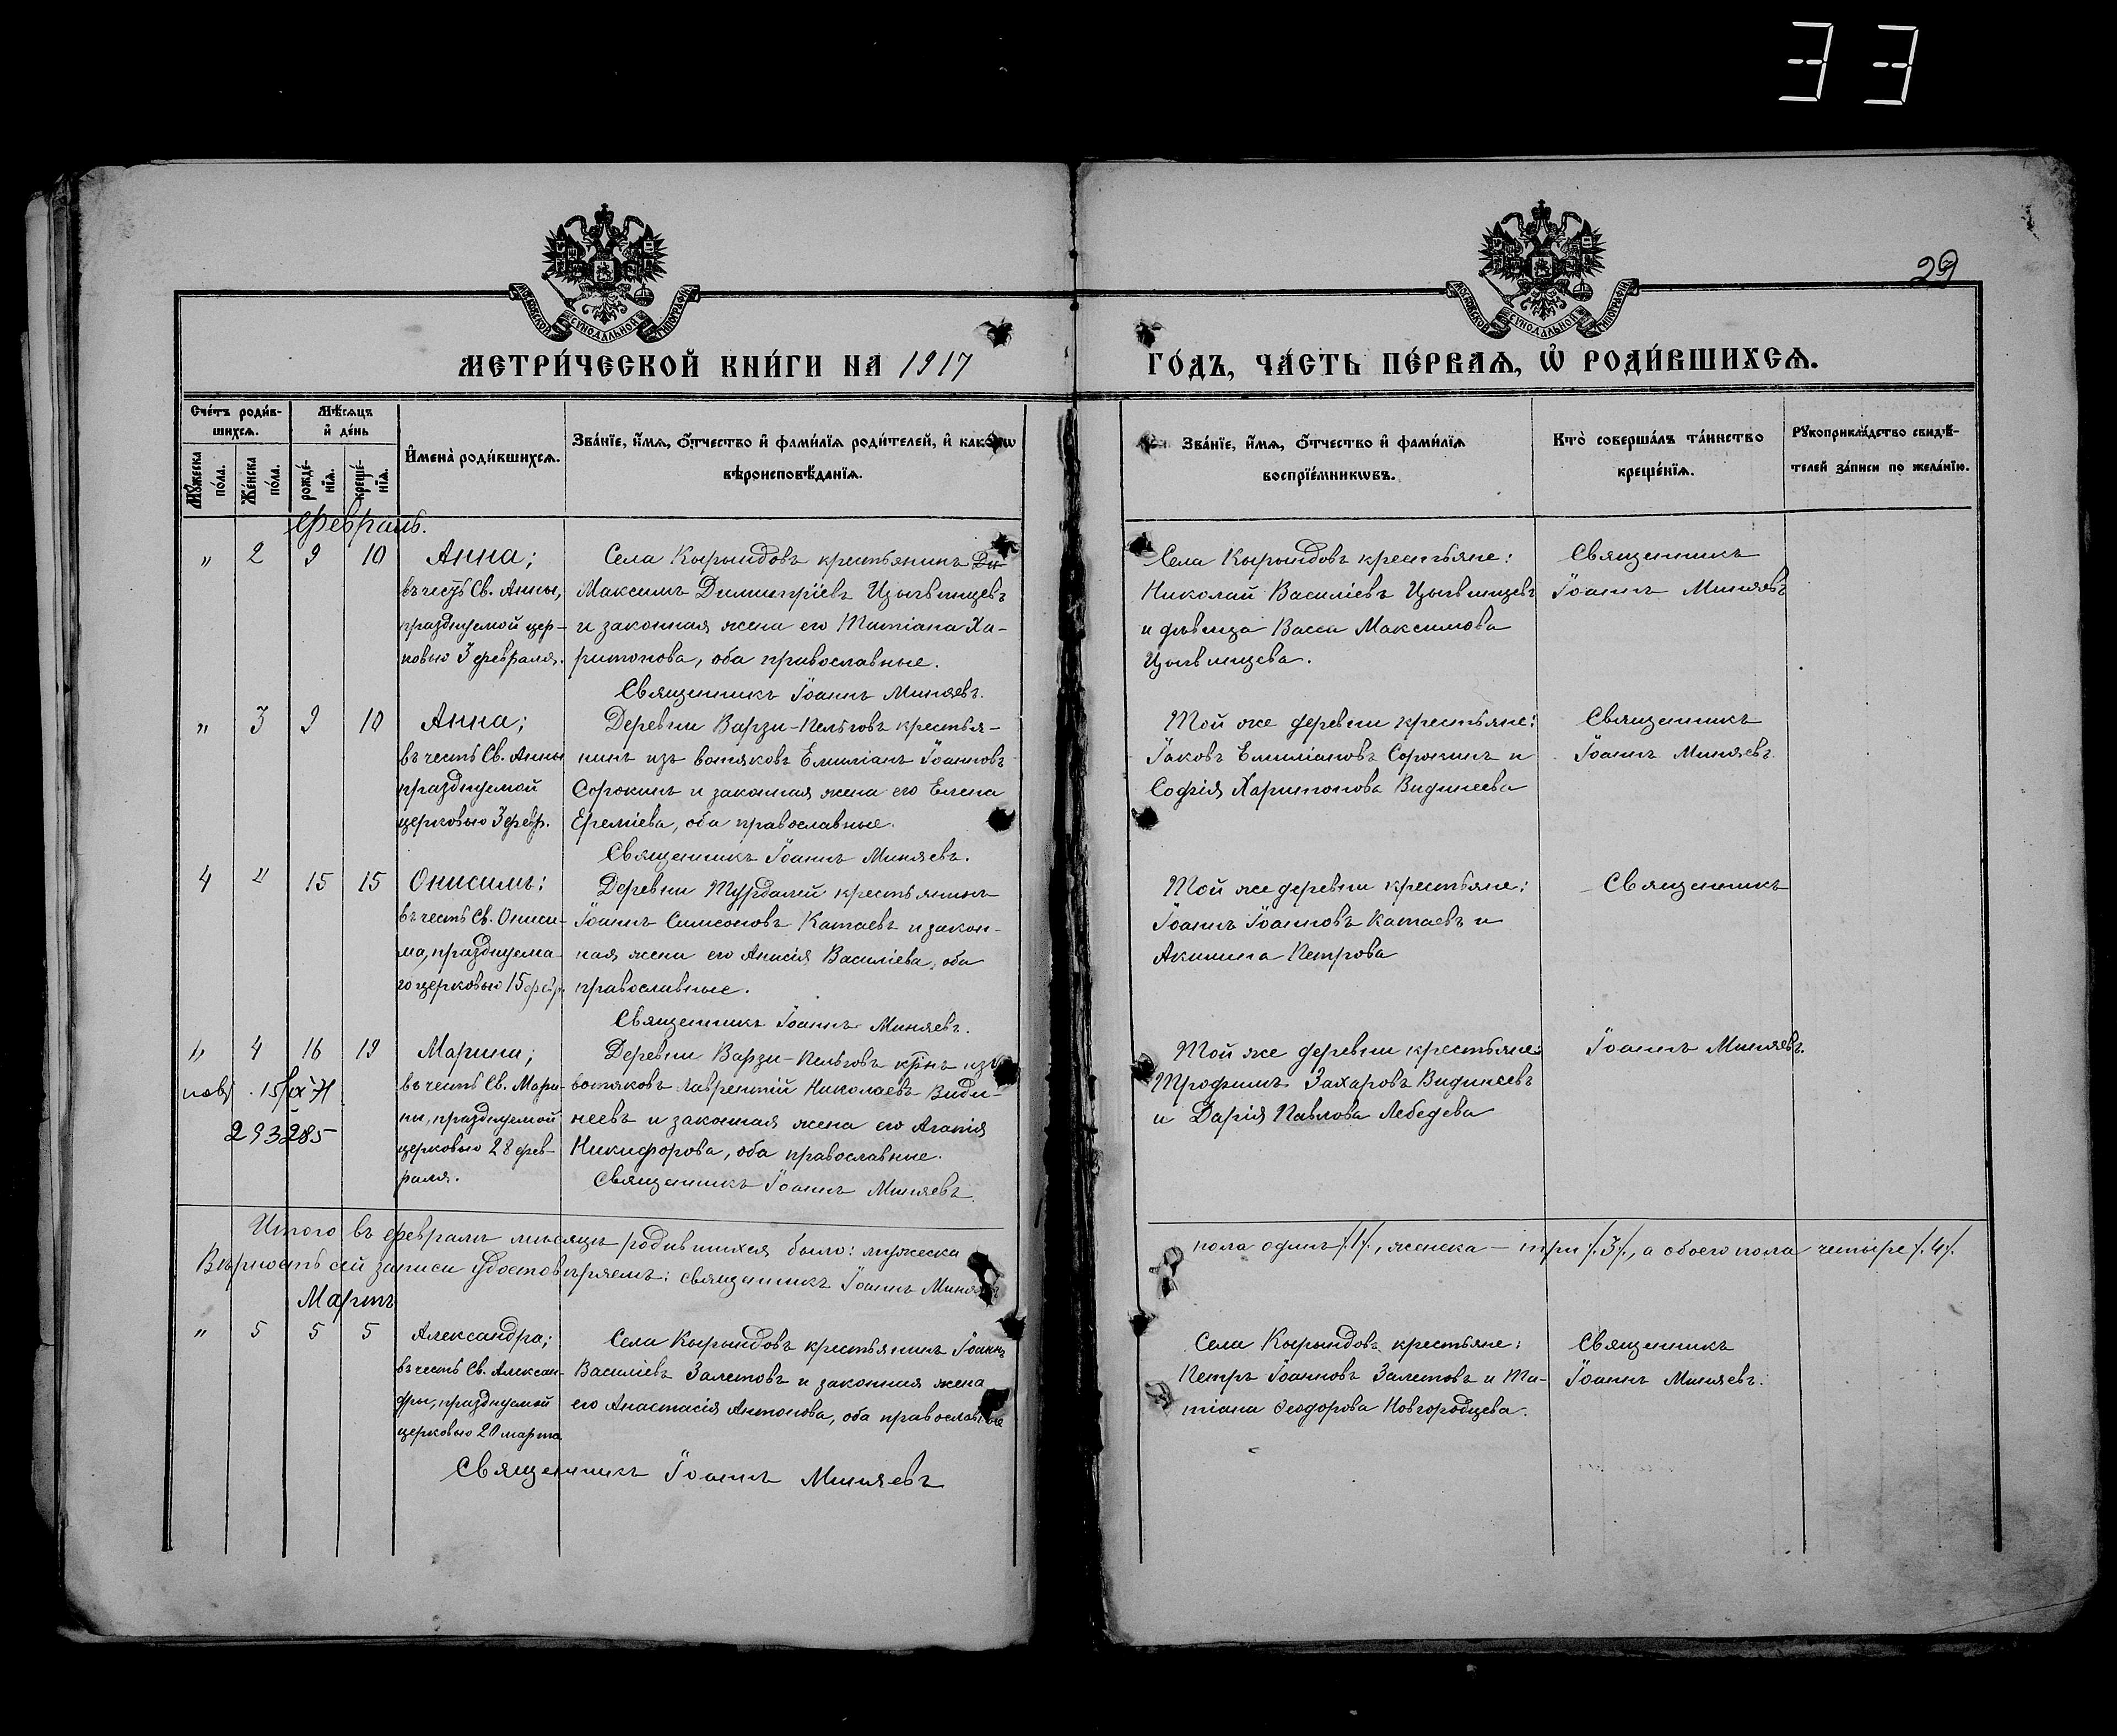 33
29
МОСКОВСКОЙ СѴНОДАЛЬНОЙ ТИПОГРАФІИ
МОСКОВСКОЙ СѴНОДАЛЬНОЙ ТИПОГРАФІИ
МЕТРИ́ЧЕСКОЙ КНИ́ГИ НА 1917
ГО́ДЪ, ЧА́СТЬ ПЕ́РВАѦ, Ѡ РОДИ́ВШИХСѦ.
Сче́тъ роди́в-
шихсѧ.
Мѣ́сѧцъ
и҆ де́нь
Мꙋ́жеска
по́ла.
Же́нска
по́ла.
рожде́-
нїѧ.
креще́-
нїѧ.
И҆мена̀ роди́вшихсѧ.
Зва́нїе, и҆́мѧ, ѻ҆́тчество и҆ фами́лїѧ роди́телей, и҆ како́гѡ
вѣроисповѣ́данїѧ.
Зва́нїе, и҆́мѧ, ѻ҆́тчество и҆ фами́лїѧ
воспрїе́мникѡвъ.
Кто̀ соверша́лъ та́инство
креще́нїѧ.
Рꙋкоприкла́дство свидѣ́-
телей за́писи по жела́нїю.
Февраль.
„ 2 9 10
Анна;
въ честь Св. Анны,
празднуемой цер-
ковью 3 февраля.
Села Кырындовъ крестьянинъ Ди-
Максимъ Димитріевъ Цывпищевъ
и законная жена его Татіана Ха-
ритонова, оба православные.
Священникъ Іоаннъ Миняевъ.
Села Кырындовъ крестьяне:
Николай Василіевъ Цывпищевъ
и дѣвица Васса Максимова
Цывпищева.
Священникъ
Іоаннъ Миняевъ
„ 3 9 10
Анна;
въ честь Св. Анны
празднуемой
церковью 3 февр.
Деревни Варзи-Пельговъ крестья-
нинъ изъ вотяковъ Емиліанъ Іоанновъ
Сорокинъ и законная жена его Елена
Ереміева, оба православные.
Священникъ Іоаннъ Миняевъ.
Той же деревни крестьяне:
Іаковъ Емиліановъ Сорокинъ и
Софія Харитонова Видинеева
Священникъ
Іоаннъ Миняевъ
4 „ 15 15
Онисимъ:
въ честь Св. Ониси-
ма, празднуема-
го церковью 15 февр.
Деревни Турдалей крестьянинъ
Іоаннъ Симеоновъ Катаевъ и закон-
ная жена его Анисія Василіева, оба
православные.
Священникъ Іоаннъ Миняевъ.
Той же деревни крестьяне:
Іоаннъ Іоанновъ Катаевъ и
Акилина Петрова
Священникъ
„ 4 16 19
повт. 15/IX 71
293285
Марина;
въ честь Св. Мари-
ны, празднуемой
церковью 28 фев-
раля.
Деревни Варзи-Пельговъ крнъ изъ
вотяковъ Лаврентій Николаевъ Види-
неевъ и законная жена его Агапія
Никифорова, оба православные.
Священникъ Іоаннъ Миняевъ.
Той же деревни крестьяне:
Трофимъ Захаровъ Видинеевъ
и Дарія Павлова Лебедева
Іоаннъ Миняевъ.
Итого въ февралѣ мѣсяцѣ родившихся было: мужеска
пола одинъ /.1/., женска - три /.3/., а обоего пола четыре /.4/.
Вѣрность сей записи удостовѣряемъ: священникъ Іоаннъ Миняевъ
Мартъ
„ 5 5 5
Александра;
въ честь Св. Алексан-
дры, празднуемой
церковью 20 марта
Села Кырындовъ крестьянинъ Іоаннъ
Василіевъ Залетовъ и законная жена
его Анастасія Антонова, оба православные
Священникъ Іоаннъ Миняевъ
Села Кырындовъ крестьяне:
Петръ Іоанновъ Залетовъ и Та-
тіана Ѳеодорова Новгородцева.
Священникъ
Іоаннъ Миняевъ.